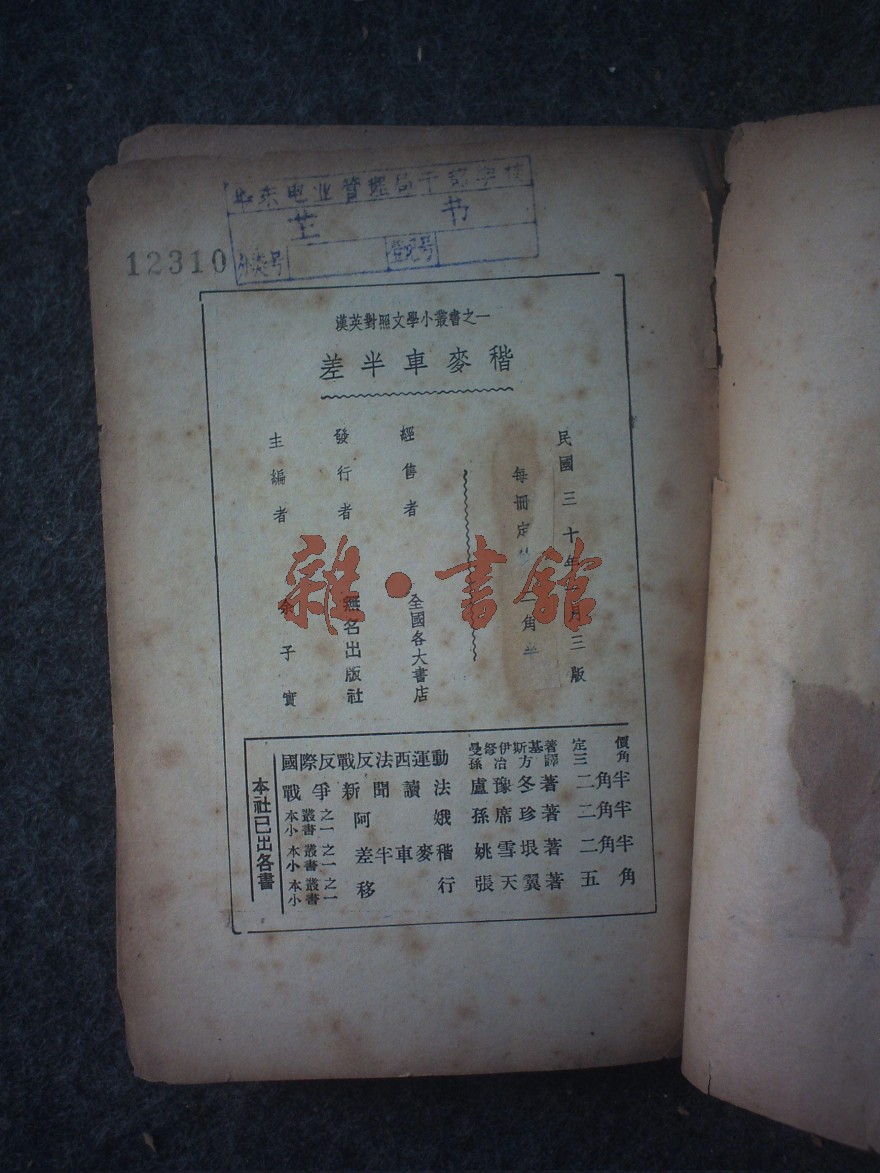 华东电业管理局干部学校
书
分类号 登记号
12310
漢英對照文學小叢書之一
差半車麥稭
民國三十年 月三版
每冊定 二角半
經售者 全國各大書店
發行者 無名出版社
主編者 余子實
雜·書館
本社已出各書
國際反戰反法西運動 曼努伊斯基著 孫冶方譯 定價三角
戰爭新聞讀法 盧豫冬著 二角半
本叢小書之一 阿娥 孫席珍著 二角半
本叢小書之一 差半車麥稭 姚雪垠著 二角半
本叢小書之一 移行 張天翼著 五角